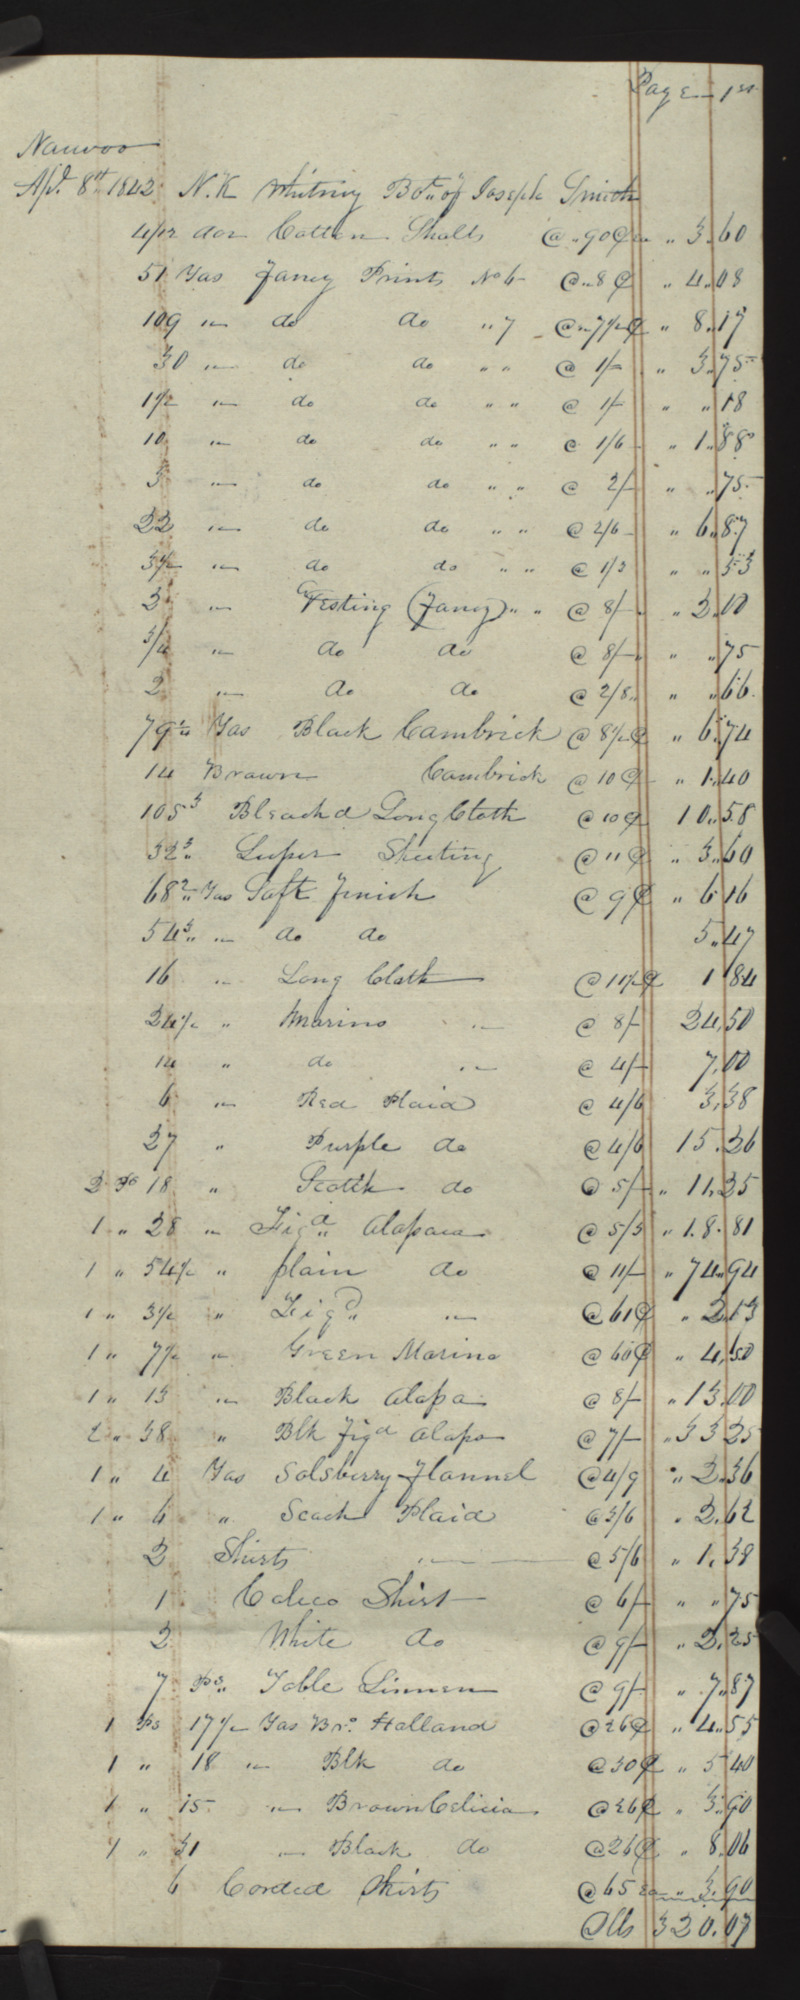 Page 1st
Nauvoo
Apl. 8th 1842 N. K Whitney Bot. of Joseph Smith
4/12 doz Cotten Shalls @ „90¢ ea „ 3.60
51 Yds Fancy Prints No 6 @ „8¢ „ 4.08
109 „ do do „ 7 @ „7½¢ „ 8.17
30 „ do do „ „ @ 1/- „ 3.75
1½ „ do do „ „ @ 1/- „ „18
10 „ do do „ „ @ 1/6 „ 1.88
3 „ do do „ „ @ 2/- „ „75
22 „ do do „ „ @ 2/6 „ 6.87
3½ „ do do „ „ @ 1/3 „ „53
2 „ Vesting (Fancy) „ „ @ 8/- „ 2.00
3/4 „ do do @ 8/- „ „75
2 „ do do @ 2/8 „ „66
79¼ Yds Black Cambrick @ 8½¢ „ 6.74
14 Brown Cambrick @ 10¢ „ 1.40
105 3 Bleachd Long Cloth @ 10¢ 10.58
32 3 Super Sheeting @ 11¢ „ 3.60
68 2 Yds Soft Finish @ 9¢ „ 6 16
54 3 „ do do 5.47
16 „ Long Cloth @ 11½¢ 1 84
24½ „ Marino „ @ 8/- 24,50
14 „ do „ @ 4/- 7,00
6 „ Red Plaid @ 4/6 3,38
27 „ Purple do @ 4/6 15.26
2 Ps 18 „ Scotch do @ 5/- „ 11.25
1 „ 28 „ Figd Alapaca @ 5/3 „ 18.81
1 „ 54½ „ plain do @ 11/- „ 74.94
1 „ 3½ „ Figd „ @ 61¢ „ 2.13
1 „ 7½ „ Green Marino @ 60¢ „ 4,50
1 „ 13 „ Black Alapa @ 8/- „ 13.00
2 „ 38 „ Blk figd Alapa @ 7/- „ 33 25
1 „ 4 Yds Solsberry Flannel @ 4/9 „ 2.36
1 „ 6 „ Scoch Plaid @ 3/6 „ 2.62
2 Shirts „ @ 5/6 „ 1.38
1 Calico Shirt @ 6/- „ „75
2 White do @ 9/- „ 2.25
7 Ps. Table Linnen @ 9/- „ 7.87
1 Ps 17½ Yds Bro. Halland @ 26¢ „ 4.55
1 „ 18 „ Blk do @ 30¢ „ 5 40
1 „ 15 „ Brown Celicia @ 26¢ „ 3.90
1 „ 31 „ Black do @ 26¢ „ 8.06
6 Corded Skirts @ 65 ea „ 3.90
Dlls 320.07